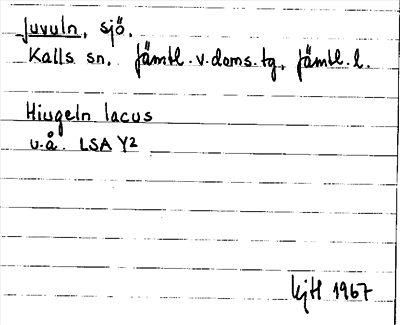 Juvuln, sjö.
Kalls sn, Jämtl. v. doms. tg, Jämtl. l.
Hiugeln lacus
u.å. LSA Y2
kjH 1967